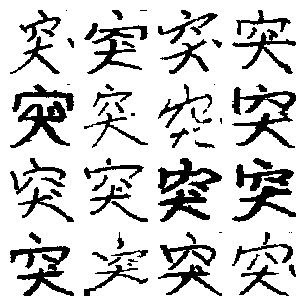 突突突突
突突突突
突突突突
突突突突